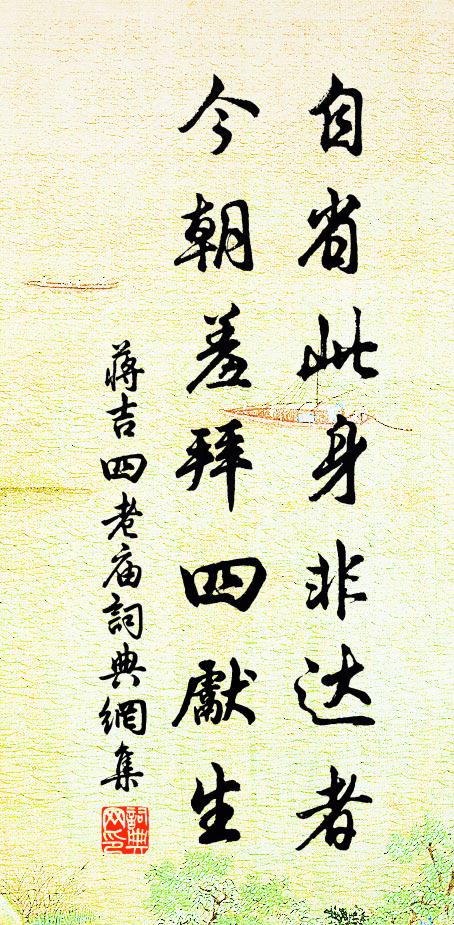 自省此身非达者
今朝羞拜四獻生
蒋吉四老庙詞典網集
詞典网印